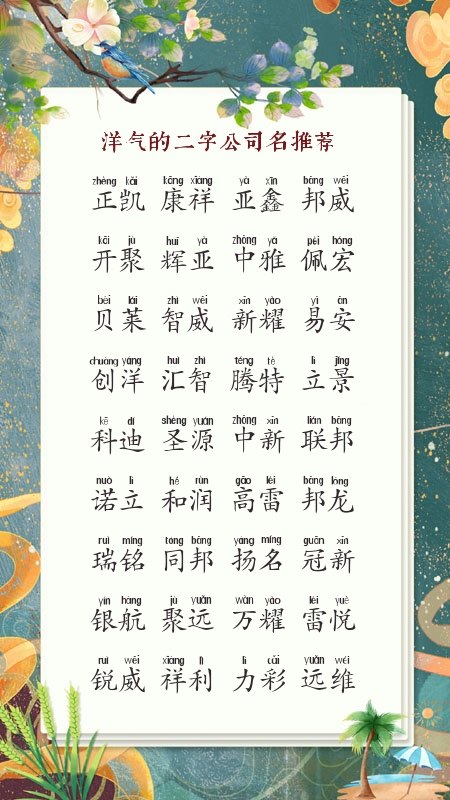 洋气的二字公司名推荐
zhèng kǎi kāng xiáng yà xīn bāng wēi
正凯 康祥 亚鑫 邦威
kāi jù huī yà zhōng yǎ pèi hóng
开聚 辉亚 中雅 佩宏
bèi lái zhì wēi xīn yào yì ān
贝莱 智威 新耀 易安
chuàng yáng huì zhì téng tè lì jǐng
创洋 汇智 腾特 立景
kē dí shèng yuán zhōng xīn lián bāng
科迪 圣源 中新 联邦
nuò lì hé rùn gāo léi bāng lóng
诺立 和润 高雷 邦龙
ruì míng tóng bāng yáng míng guān xīn
瑞铭 同邦 扬名 冠新
yín háng jù yuǎn wàn yào léi yuè
银航 聚远 万耀 雷悦
ruì wēi xiáng lì lì cǎi yuǎn wéi
锐威 祥利 力彩 远维